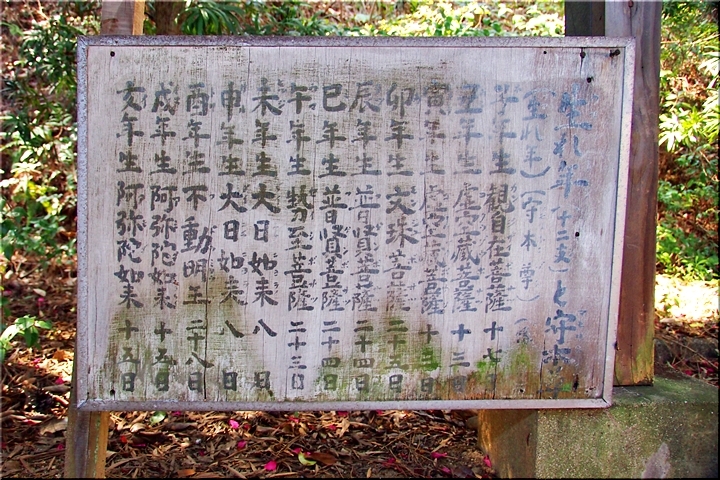 生れ年（十二支）と守本
（生れ年）（守本尊）（縁
子年生 観自在菩薩 十七日
丑年生 虚空蔵菩薩 十三日
寅年生 虚空蔵菩薩 十三日
卯年生 文珠菩薩 二十五日
辰年生 普賢菩薩 二十四日
巳年生 普賢菩薩 二十四日
午年生 勢至菩薩 二十三日
未年生 大日如来 八日
申年生 大日如来 八日
酉年生 不動明王 二十八日
戌年生 阿弥陀如来 十五日
亥年生 阿弥陀如来 十五日